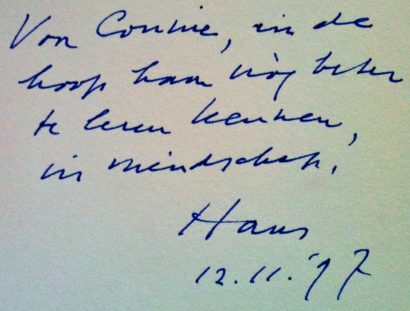 Voor Connie, in de
hoop haar nòg beter
te leren kennen,
in vriendschap,
Hans
12.11.'97